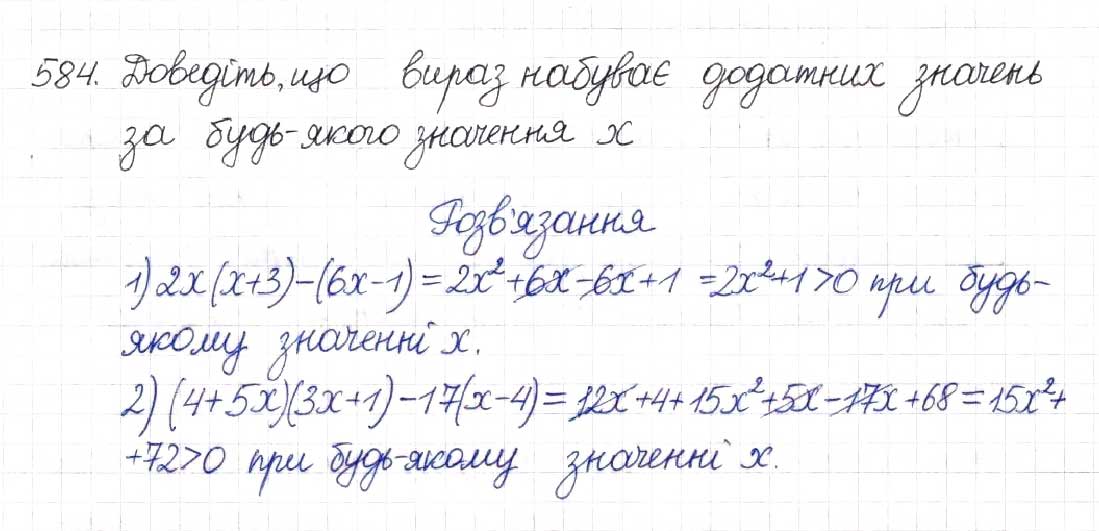 584. Доведіть, що вираз набуває додатних значень
за будь-якого значення x
Розв'язання
1) 2x(x+3)-(6x-1) = 2x²+6x-6x+1 = 2x²+1>0 при будь-
якому значенні x.
2) (4+5x)(3x+1)-17(x-4) = 12x+4+15x²+5x-17x+68 = 15x²+
+72>0 при будь-якому значенні x.